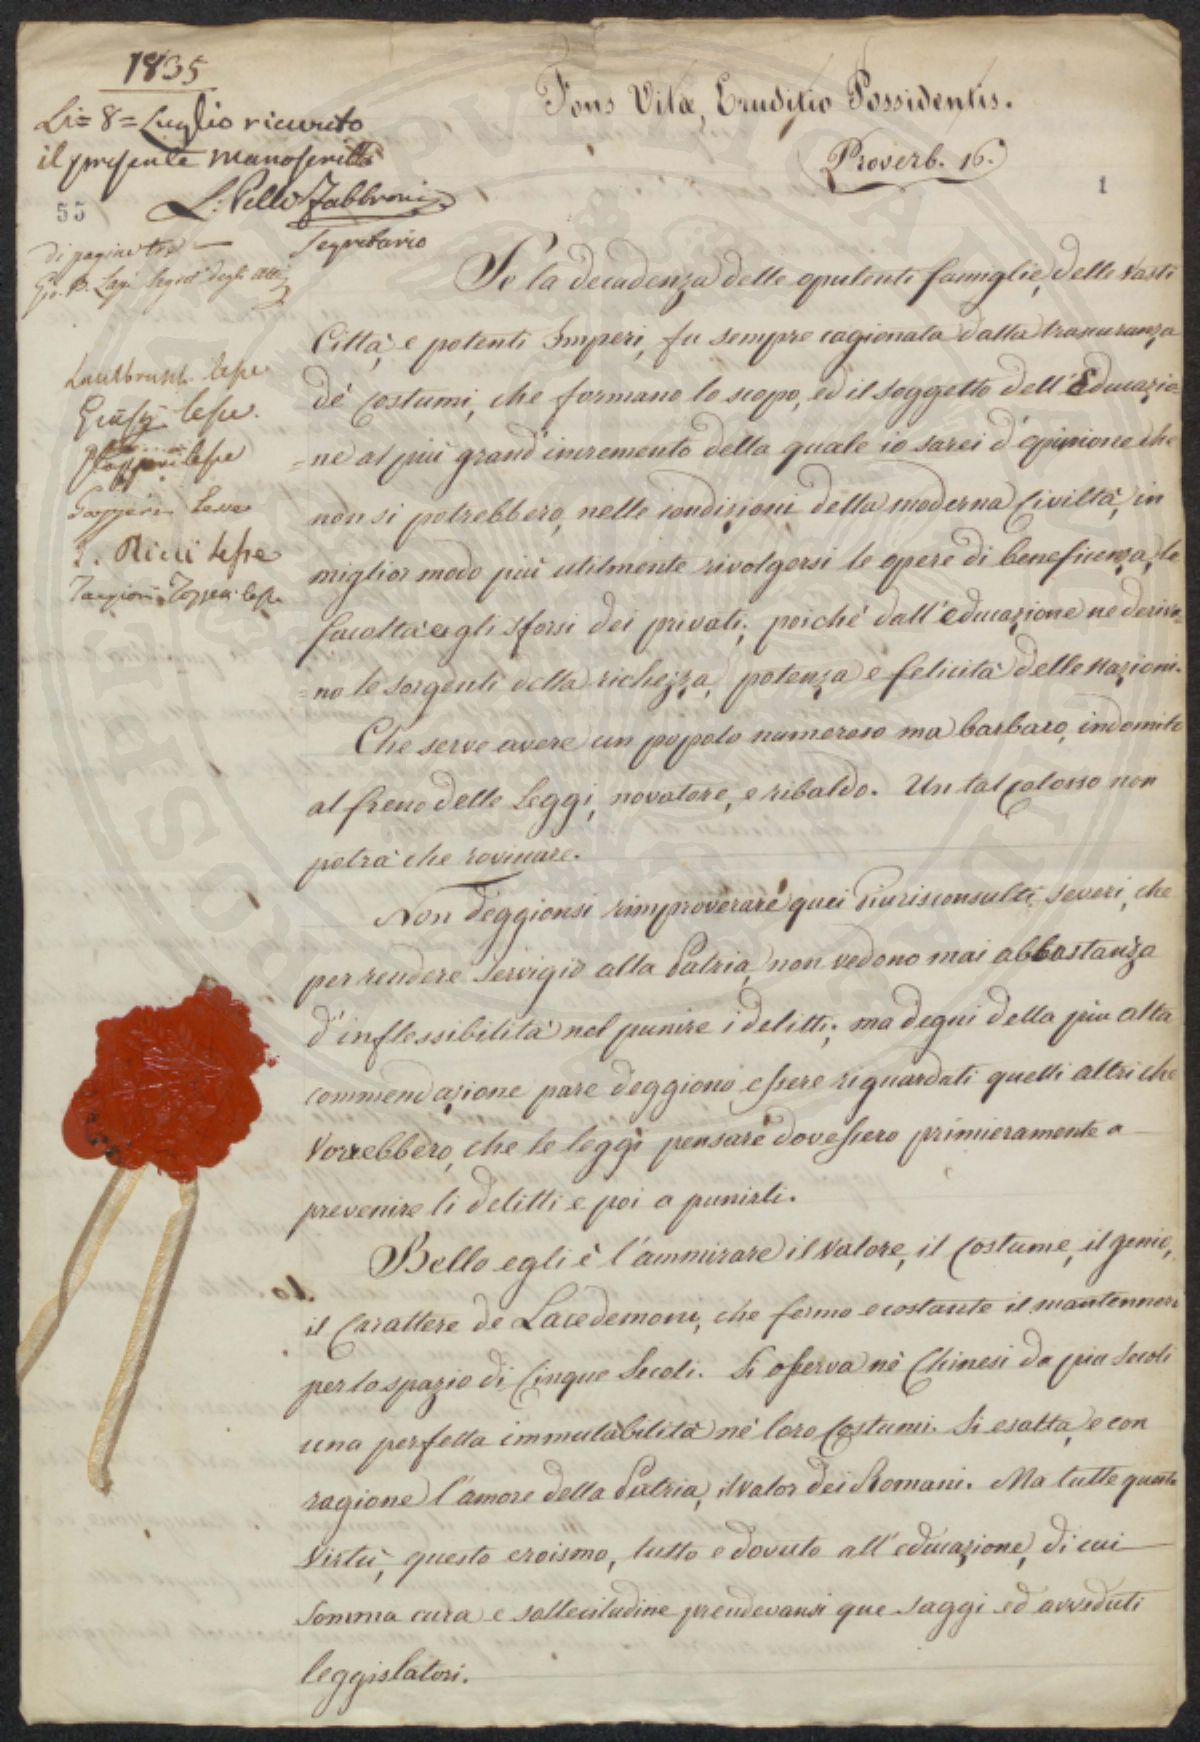 1835
Li = 8 = Luglio ricevuto
il presente manoscritto
L. Pelli Fabbroni
Segretario
55
di pagine tre
Segret. degli Atti
lesse
lesse.
lesse
Gazzeri Lesse
Ricci lesse
Targioni Tozzetti lesse
Fons Vitæ, Eruditio Possidentis.
Proverb. 16.
1
Se la decadenza delle opulenti famiglie, delle vaste
Città, e potenti Imperi, fu sempre cagionata dalla trascuranza
de' costumi, che formano lo scopo, ed il soggetto dell'Educazio-
=ne al più grand'incremento della quale io sarei d'opinione che
non si potrebbero, nelle condizioni della moderna Civiltà, in
miglior modo più utilmente rivolgersi le opere di beneficenza, le
facoltà e gli sforzi dei privati; poichè dall'educazione ne deriva-
=no le sorgenti della richezza, potenza e felicità delle nazioni.
Che serve avere un popolo numeroso ma barbaro, indomito
al freno delle Leggi, novatore, e ribaldo. Un tal Colosso non
potrà che rovinare.
Non deggionsi rimproverare quei Giurisconsulti severi, che
per rendere servigio alla Patria, non vedono mai abbastanza
d'inflessibilità nel punire i delitti; ma degni della più alta
commendazione pare deggiono essere riguardati quelli altri che
vorrebbero, che le leggi pensare dovessero primieramente a
prevenire li delitti e poi a punirli.
Bello egli è l'ammirare il valore, il Costume, il genio,
il Carattere de Lacedemoni, che fermo e costante il mantennero
per lo spazio di Cinque Secoli. Si osserva nè Chinesi da più Secoli
una perfetta immutabilità nè loro Costumi. Si esalta, e con
ragione l'amore della Patria, il valor dei Romani. Ma tutte queste
virtù, questo eroismo, tutto e dovuto all'educazione, di cui
somma cura e sollecitudine prendevansi que saggi ed avveduti
leggislatori.